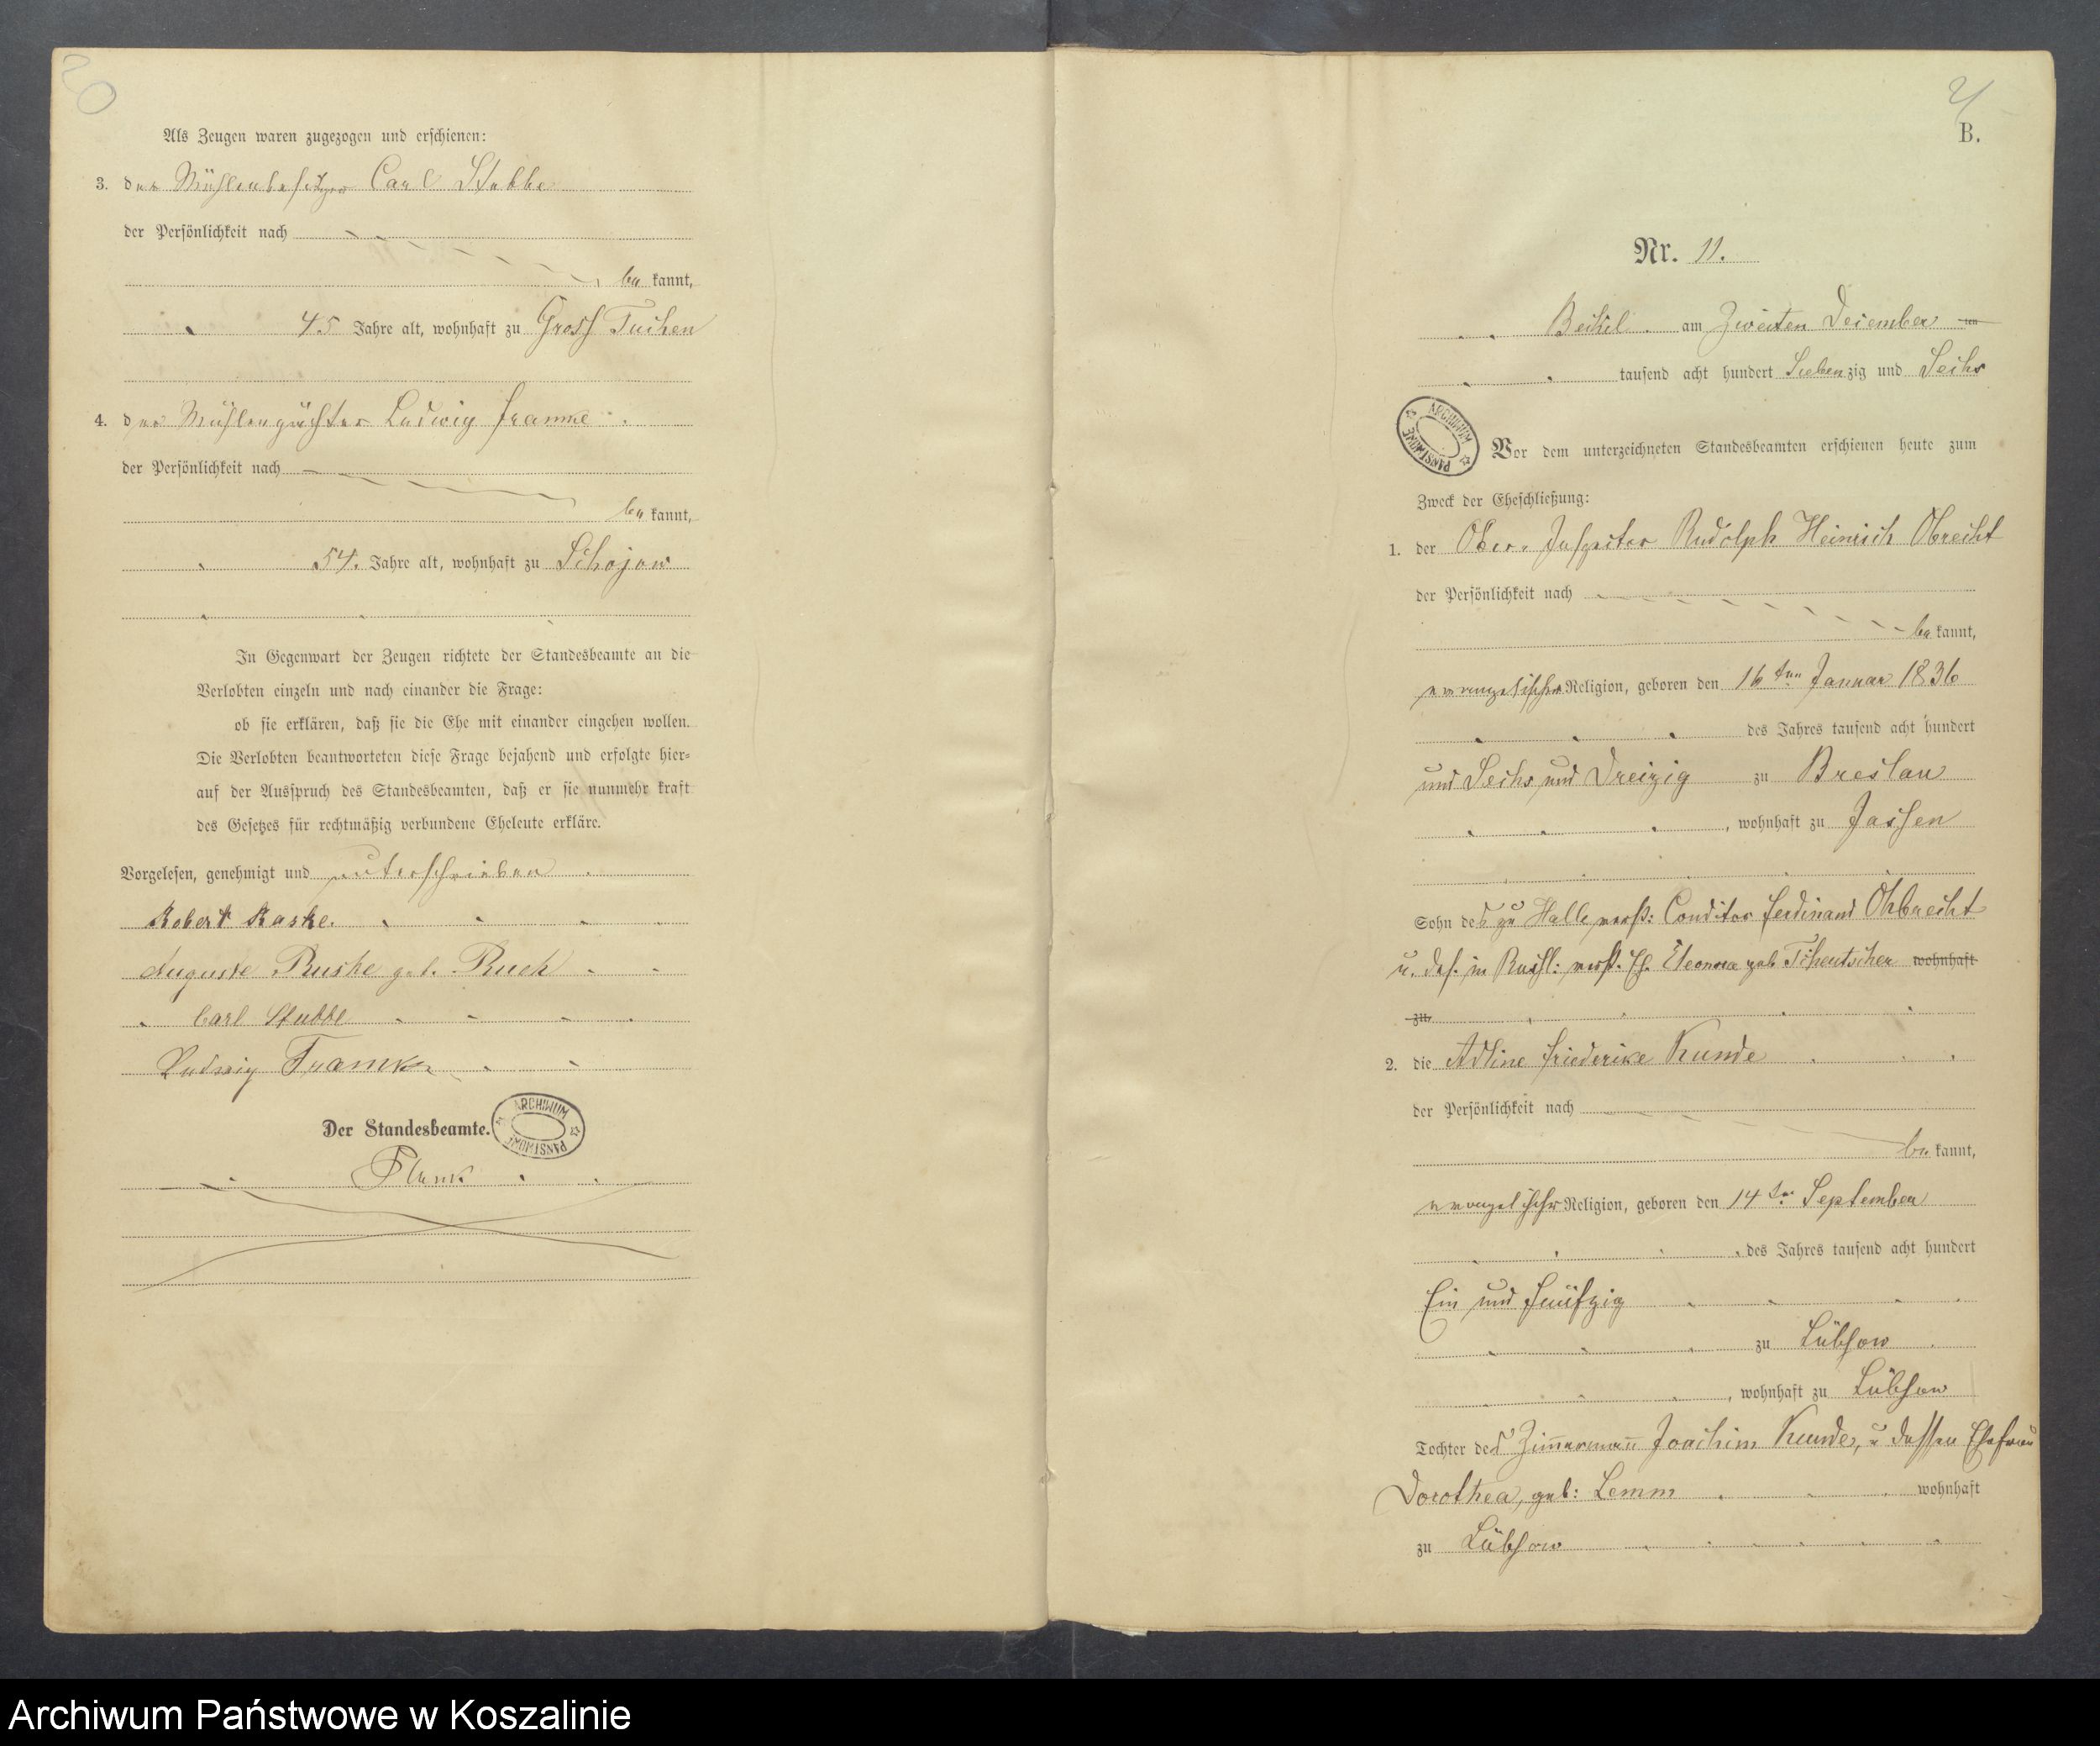 20
Als Zeugen waren zugezogen und erschienen:
3. der Mühlenbesitzer Carl Stubbe
der Persönlichkeit nach
be kannt,
45 Jahre alt, wohnhaft zu Gross Tuchen
4. der Mühlenpächter Ludwig Franke
der Persönlichkeit nach
be kannt,
54. Jahre alt, wohnhaft zu Schojow
In Gegenwart der Zeugen richtete der Standesbeamte an die
Verlobten einzeln und nach einander die Frage:
ob sie erklären, daß sie die Ehe mit einander eingehen wollen.
Die Verlobten beantworteten diese Frage bejahend und erfolgte hier-
auf der Ausspruch des Standesbeamten, daß er sie nunmehr kraft
des Gesetzes für rechtmäßig verbundene Eheleute erkläre.
Vorgelesen, genehmigt und unterschrieben
Robert Raske.
Auguste geb. Ruch
Carl Stubbe
Ludwig Franke
Der Standesbeamte.
ARCHIWUM PAŃSTWOWE
21
B.
Nr. 11.
am Zweiten December
tausend acht hundert Siebenzig und Sechs
ARCHIWUM PAŃSTWOWE
Vor dem unterzeichneten Standesbeamten erschienen heute zum
Zweck der Eheschließung:
1. der Ober-Inspector Rudolph Heinrich Obrecht
der Persönlichkeit nach
be kannt,
evangelischer Religion, geboren den 16ten Januar 1836
des Jahres tausend acht hundert
und Sechs und Dreizig zu Breslau
, wohnhaft zu Jassen
Sohn des zu Halle verst: Conditor Ferdinand Ohbrecht
u. dess. in verst. Eleonore geb. wohnhaft
zu
2. die Adline Friederike Kunde
der Persönlichkeit nach
be kannt,
evangelischer Religion, geboren den 14ten September
des Jahres tausend acht hundert
Ein und Fünfzig
zu Lübsow
, wohnhaft zu Lübsow
Tochter des Zimmermann Joachim Kunde, u dessen Ehefrau
Dorothea, geb: Lemm wohnhaft
zu Lübsow
Archiwum Państwowe w Koszalinie